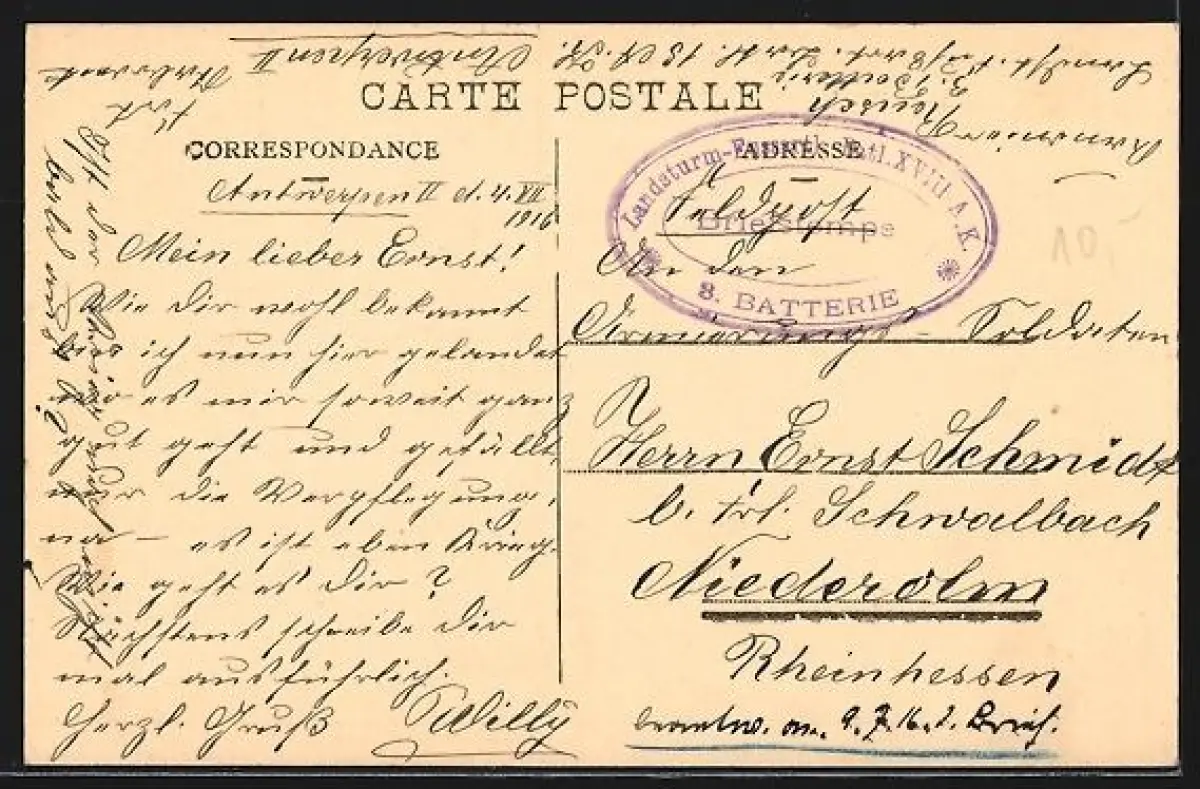 CARTE POSTALE
CORRESPONDANCE
Antwerpen II d. 4. VII
1916
Mein lieber Ernst!
Wie Dir wohl bekannt
bin ich nun hier gelandet
wo es mir soweit ganz
gut geht und gefällt,
nur die Verpflegung,
na — es ist eben Krieg.
Wie geht es Dir?
Nächstens schreibe Dir
mal ausführlich.
Herzl. Gruß Willy
ADRESSE
Landsturm-Fussartl. Batl. XVIII A.K.
Briefstempe
8. BATTERIE
Feldpost
An den
Armierungs-Soldaten
Herrn Ernst Schmidt
b. Frl. Schwalbach
Niederolm
Rheinhessen
beantw. am 9.7.16. d. Brief.
Kanonier Reusch
Antwerpen II
10,-